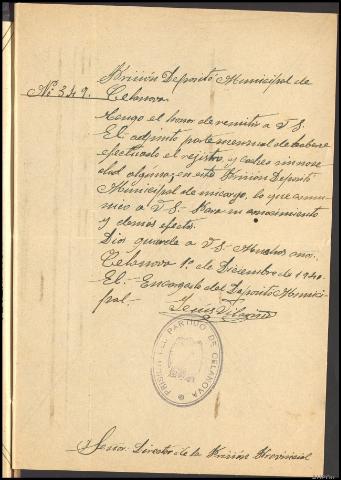 Prisión Deposito Municipal de
Nº 349. Celanova
Tengo el honor de remitir a V S.
El adjunto parte mensual de haberse
efectuado el rejistro, y cacheo sin nove
dad alguna, en este Prisión Deposito
Municipal de mi cargo, lo que comu
nico a V S.- Para su conocimiento
y demás efectos.
Dios guarde a V S- Muchos años.
Celanova 1º de Diciembre de 1940.
El- Encargado del Deposito Munici
pal-
Jesús
PRISION DEL PARTIDO DE CELANOVA
Señor: Director de la Prisión Provincial